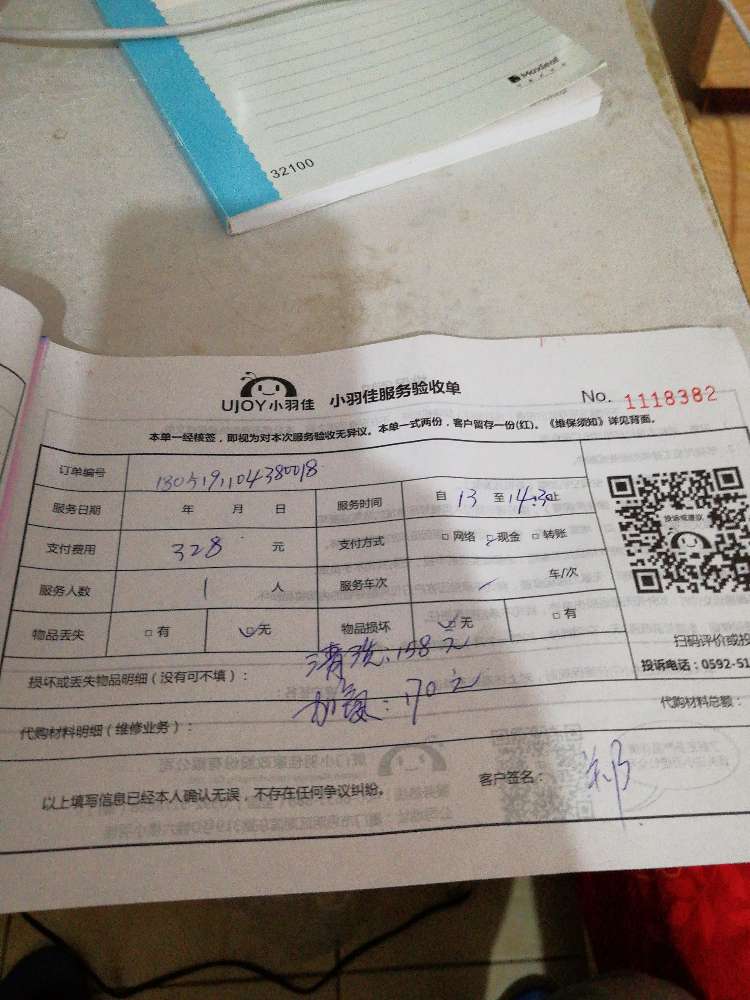 Maxleaf
32100
UJOY小羽佳 小羽佳服务验收单
No. 1118382
本单一经核签，即视为对本次服务验收无异议。本单一式两份，客户留存一份(红)。《维保须知》详见背面。
订单编号 1805191104380018
服务日期 年 月 日 服务时间 自 13 至 14:30止
支付费用 328 元 支付方式 □ 网络 □ 现金 □ 转账
服务人数 1 人 服务车次 车/次
物品丢失 □ 有 □ 无 物品损坏 □ 无 □ 有
投诉或建议
扫码评价或投
投诉电话：0592-51
损坏或丢失物品明细（没有可不填）： 清洗：158元
加氨：170元
代购材料明细（维修业务）： 代购材料总额：
以上填写信息已经本人确认无误，不存在任何争议纠纷。 客户签名：